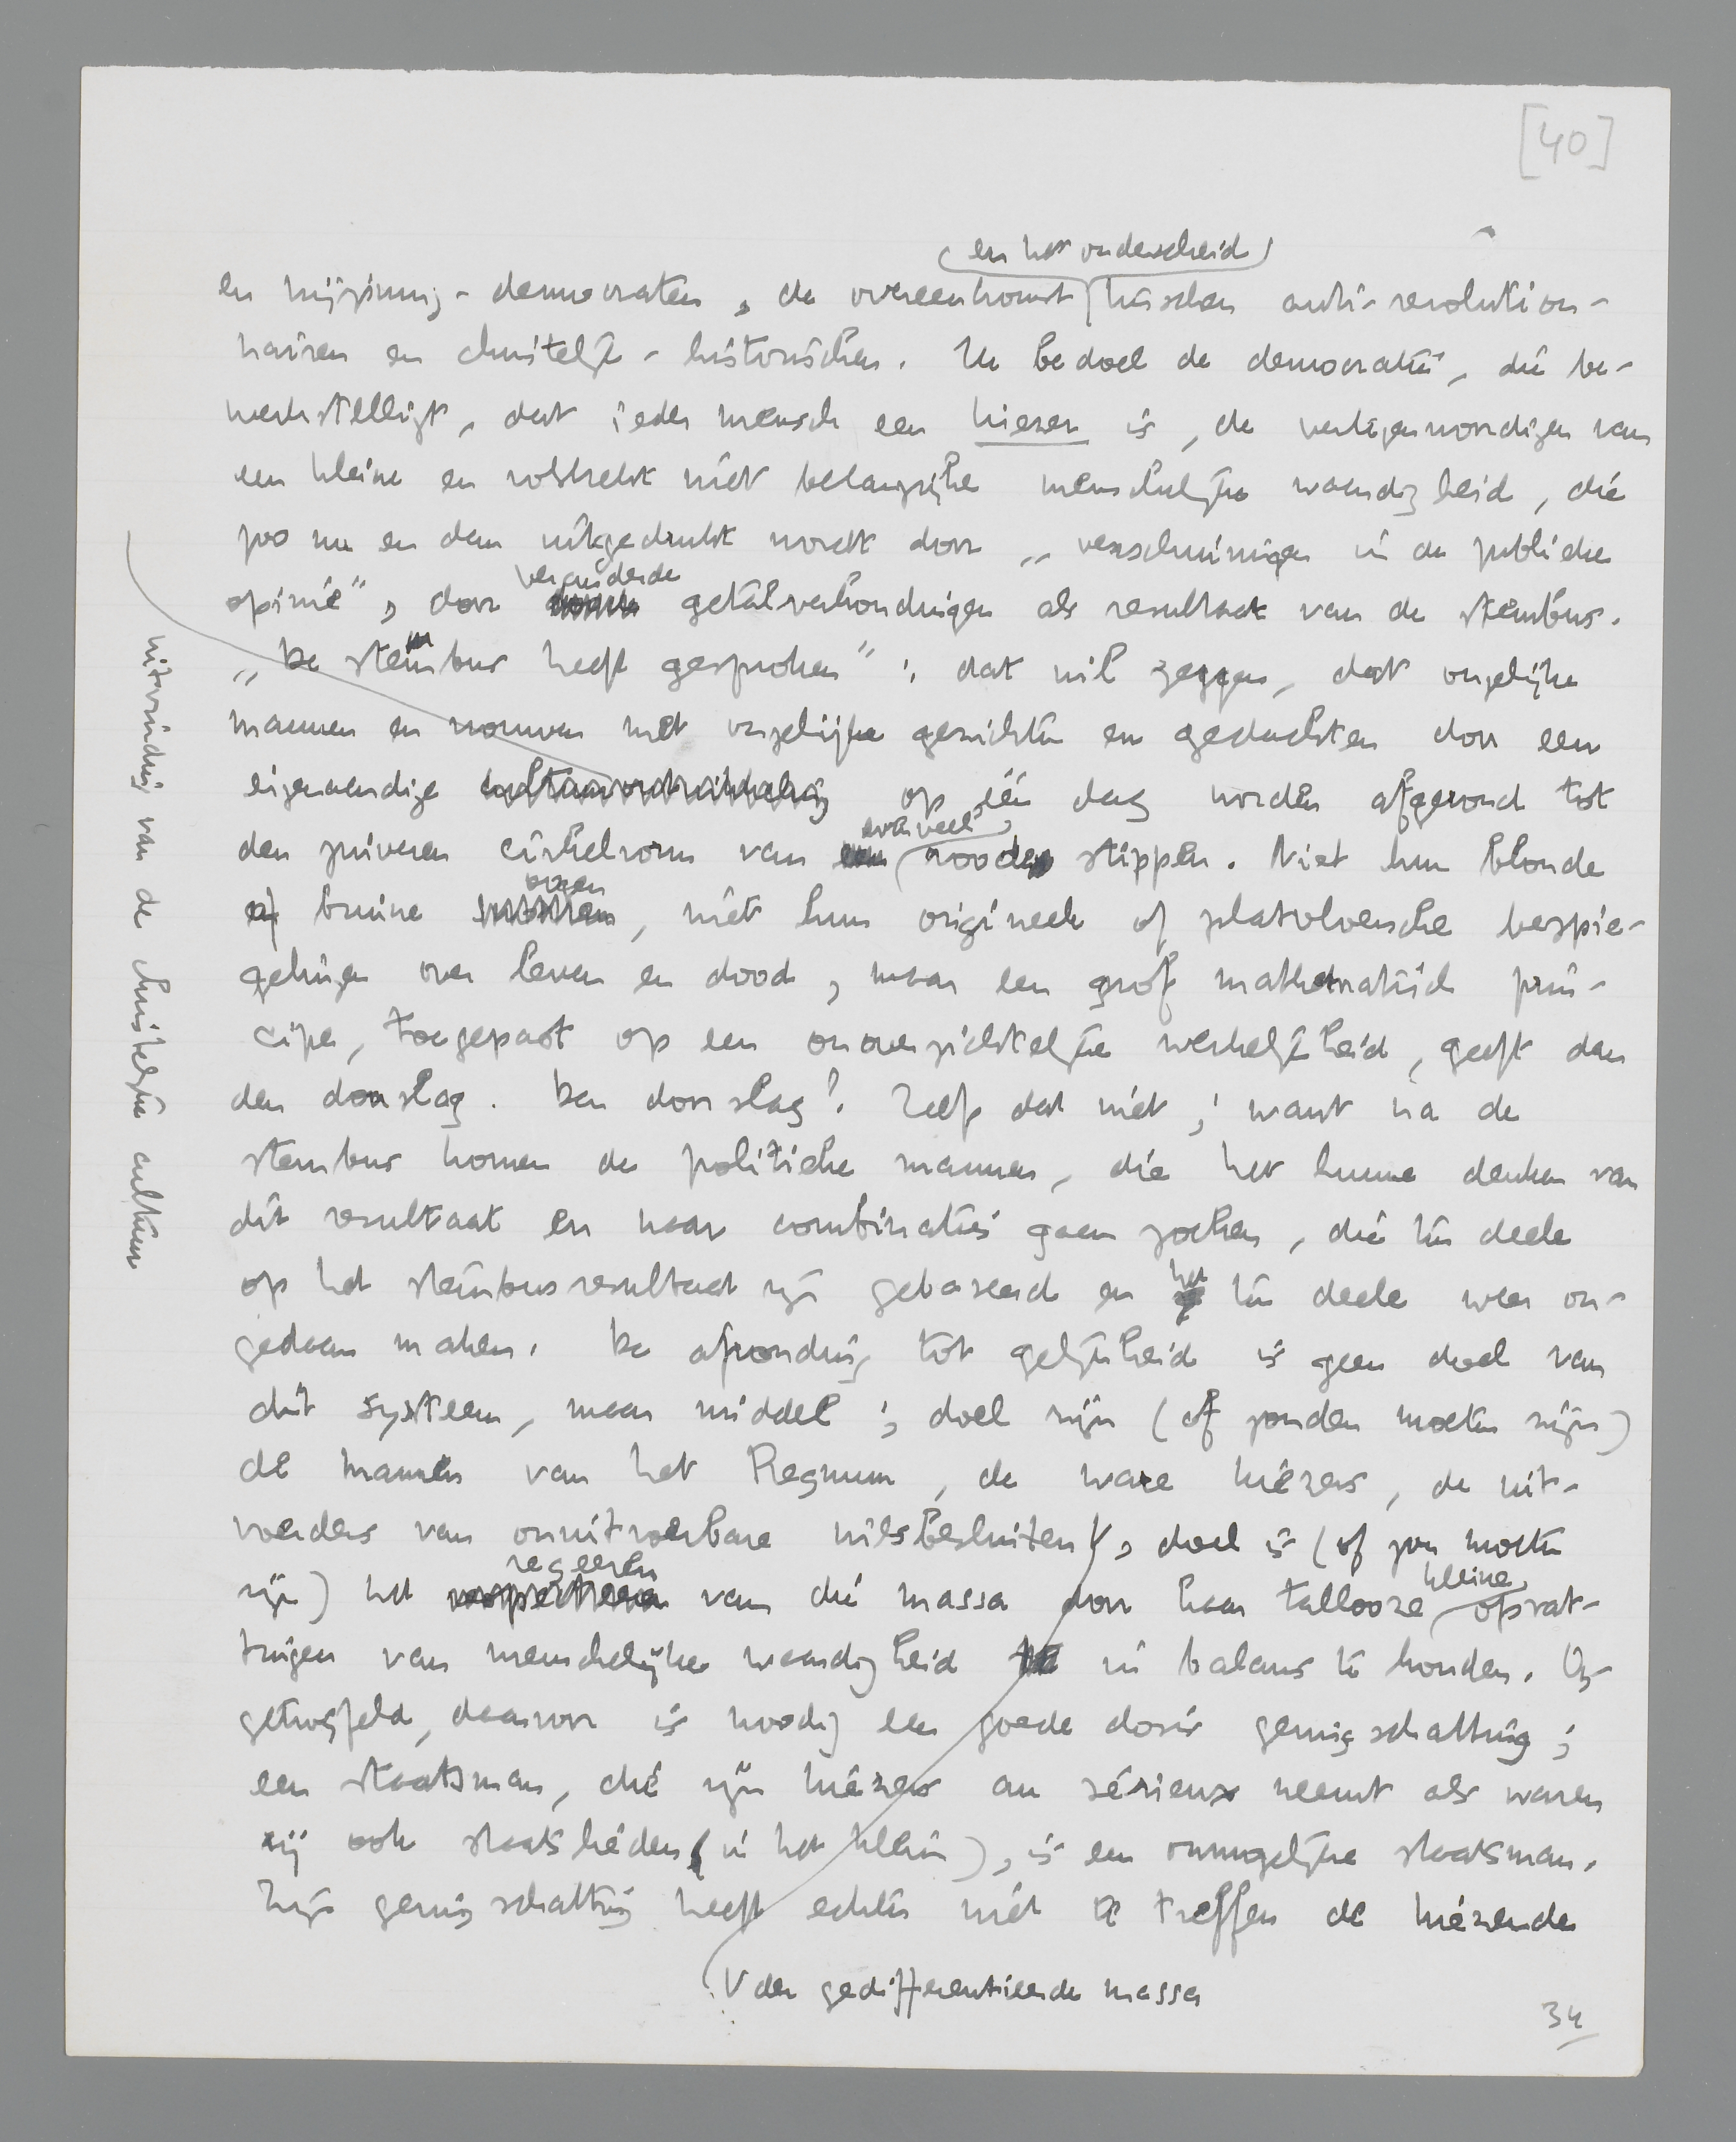 [40]
(en het onderscheid)
en vrijzinnig-democraten, de overeenkomst tusschen anti-revolution-
nairen en christelijk-historischen. Ik bedoel de democratie, die be-
werkstelligt, dat ieder mensch een kiezer is, de vertegenwoordiger van
een kleine en volstrekt niet belangrijke menschelijke waardigheid, die
zoo nu en dan uitgedrukt wordt door „verschuivingen in de publieke
veranderde
opinie”, door getalverhoudingen als resultaat van de stembus.
„De stembus heeft gesproken”; dat wil zeggen, dat ongelijke
mannen en vrouwen met ongelijke gezichten en gedachten door een
eigenaardige op één dag worden afgerond tot
evenveel
den zuiveren cirkelvorm van roode stippen. Niet hun blonde
oogen
of bruine, niet hun origineele of platvloersche bespie-
gelingen over leven en dood, maar een grof mathematisch prin-
cipe, toegepast op een onoverzichtelijke werkelijkheid, geeft dan
den doorslag. Den doorslag? Zelfs dat niet; want na de
stembus komen de politieke mannen, die het hunne denken van
dit resultaat en naar combinaties gaan zoeken, die ten deele
het
op het stembusresultaat zijn gebaseerd en ten deele weer on-
gedaan maken. De afronding tot gelijkheid is geen doel van
dit systeem, maar middel; doel zijn (of zouden moeten zijn)
de mannen van het Regnum, de ware kiezers, de uit-
voerders van onuitvoerbare wilsbesluiten, doel is (of zou moeten
regeeren kleine
zijn) het van die massa door haar tallooze opvat-
tingen van menschelijke waardigheid in balans te houden. On-
getwijfeld, daarvoor is noodig een goede dosis geringschatting;
een staatsman, die zijn kiezers au sérieux neemt als waren
zij ook staatslieden (in het klein), is een onmogelijke staatsman.
Zijn geringschatting heeft echter niet te treffen de kiezende
V der gedifferentieerde massa
34
uitvinding van de christelijke cultuur